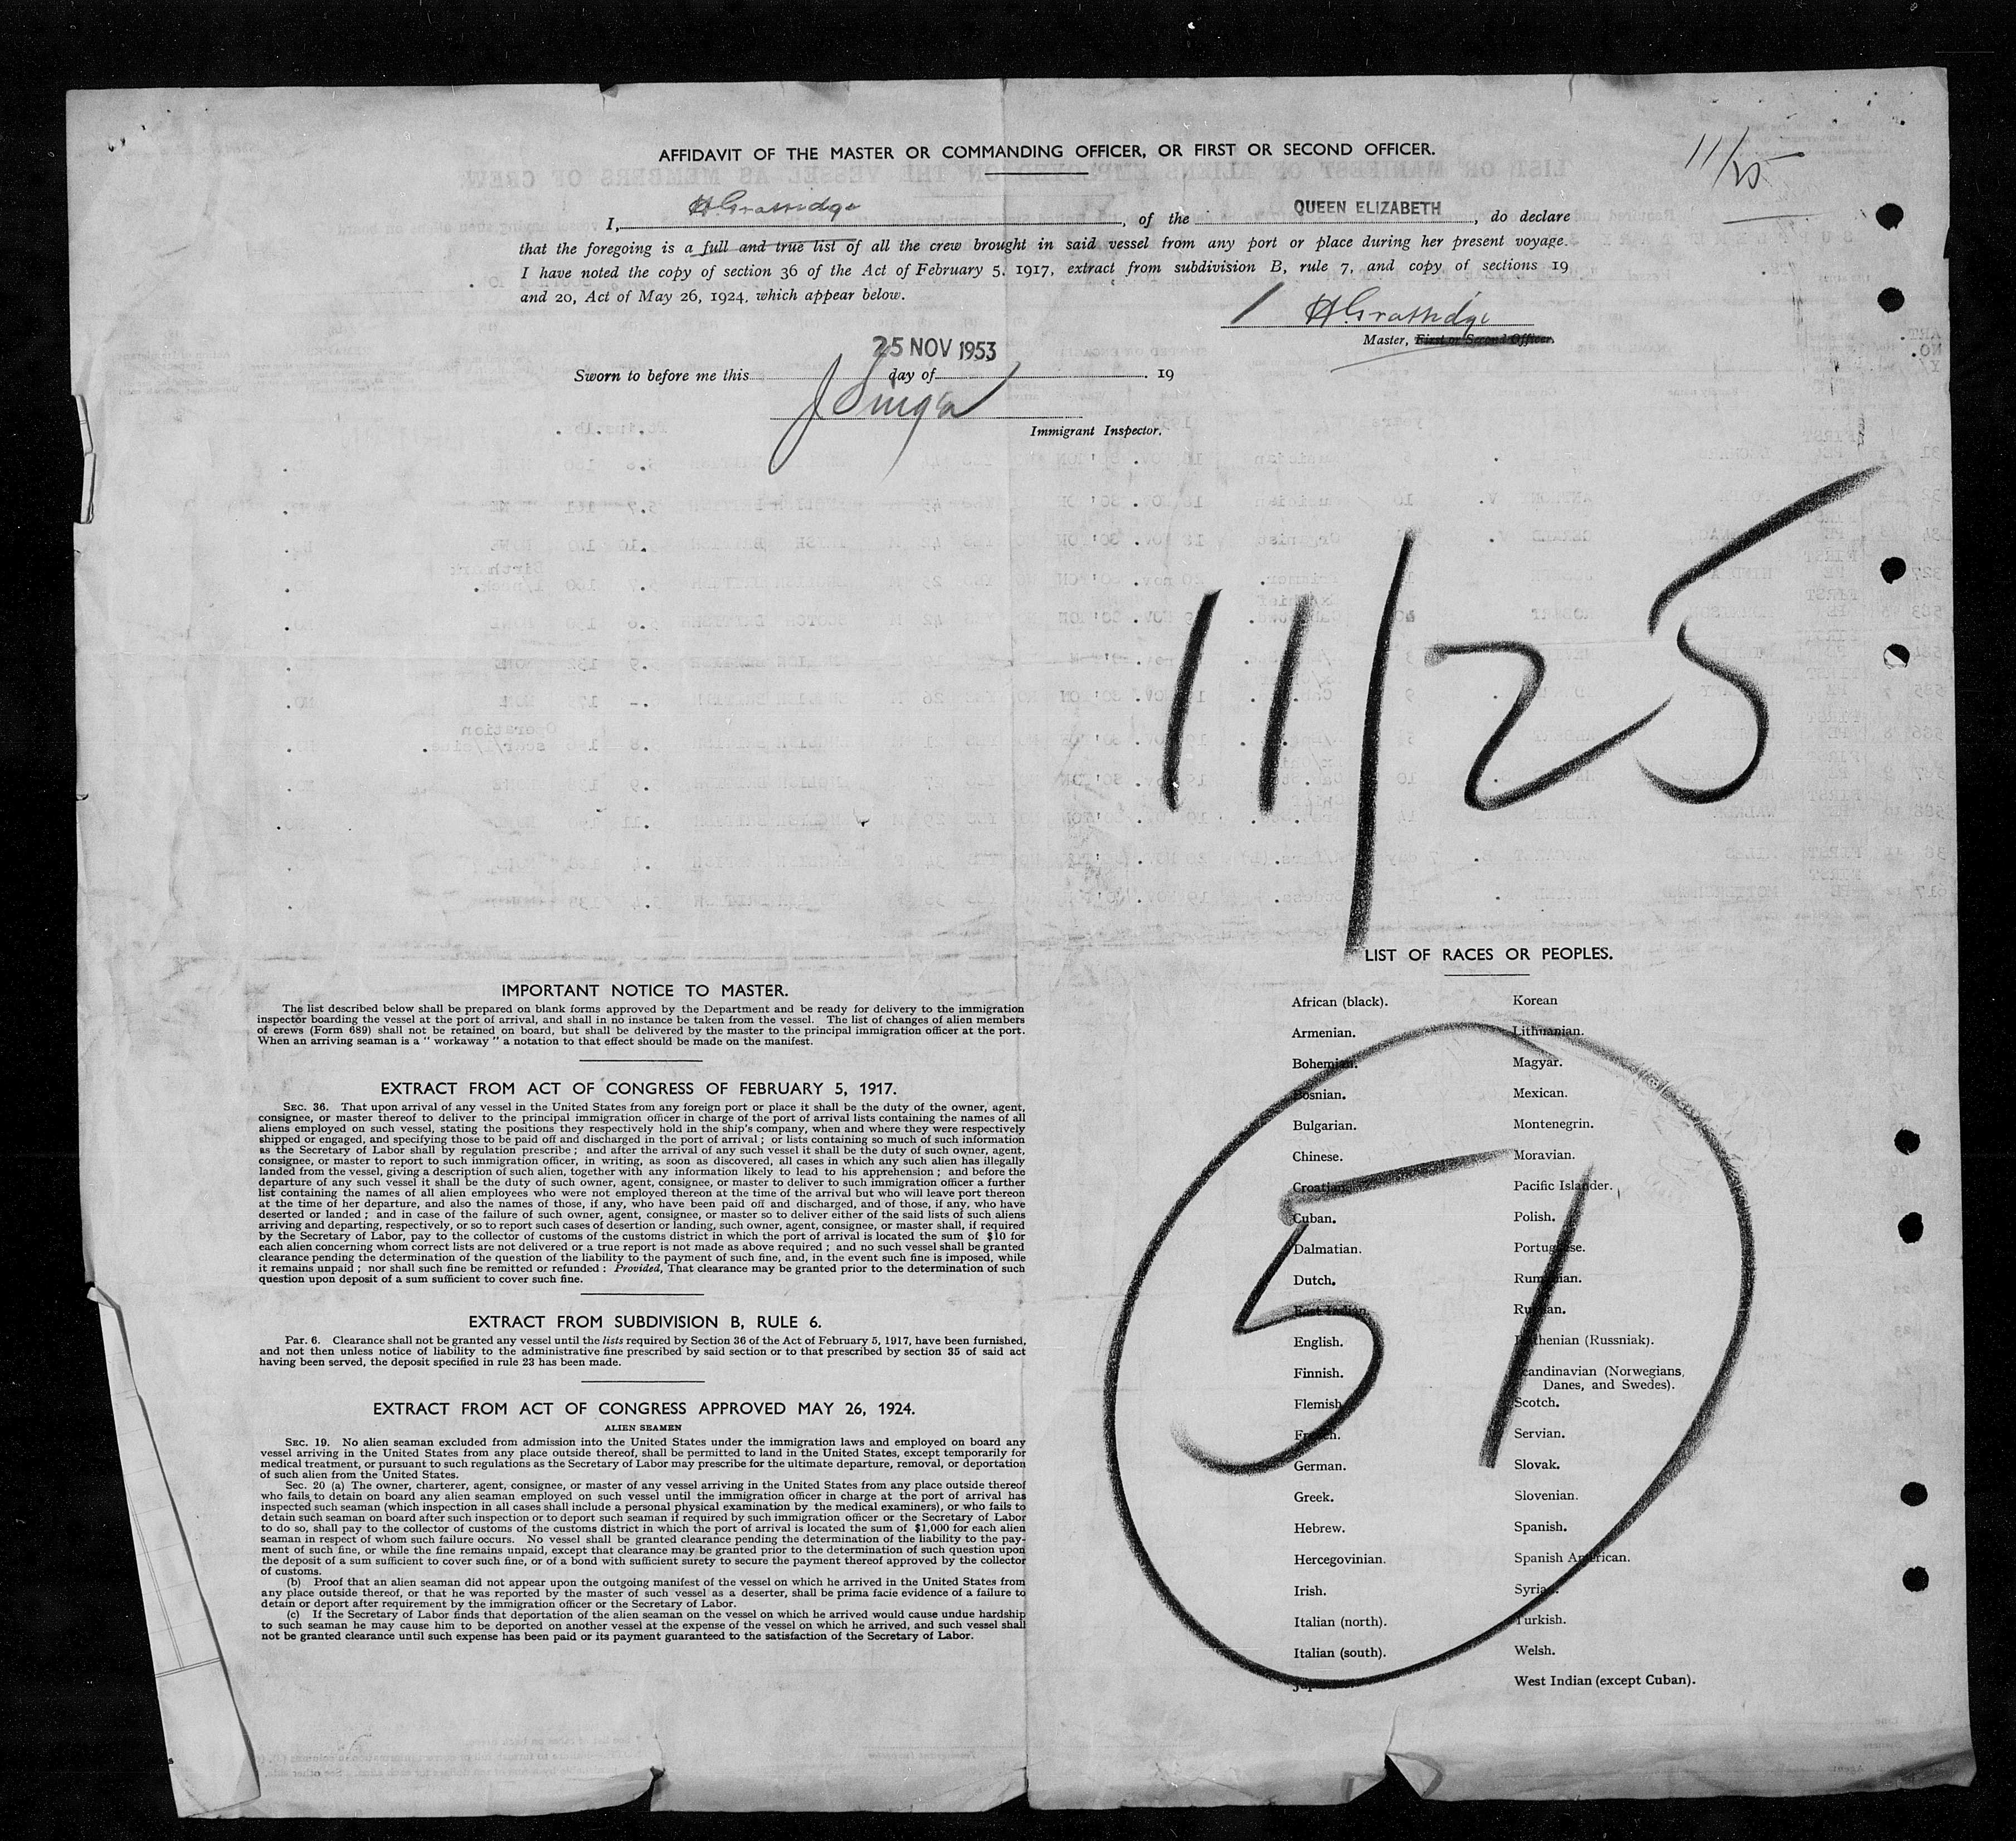 AFFIDAVIT OF THE MASTER OR COMMANDING OFFICER, OR FIRST OR SECOND OFFICER.
11/25
I, H Grattidge, of the QUEEN ELIZABETH, do declare
that the foregoing is a full and true list of all the crew brought in said vessel from any port or place during her present voyage.
I have noted the copy of section 36 of the Act of February 5, 1917, extract from subdivision B, rule 7, and copy of sections 19
and 20, Act of May 26, 1924, which appear below.
H Grattidge
Master, First or Second Officer.
25 NOV 1953
Sworn to before me this day of 19
J Singer
Immigrant Inspector.
11/25
IMPORTANT NOTICE TO MASTER.
The list described below shall be prepared on blank forms approved by the Department and be ready for delivery to the immigration
inspector boarding the vessel at the port of arrival, and shall in no instance be taken from the vessel. The list of changes of alien members
of crews (Form 689) shall not be retained on board, but shall be delivered by the master to the principal immigration officer at the port.
When an arriving seaman is a " workaway " a notation to that effect should be made on the manifest.
EXTRACT FROM ACT OF CONGRESS OF FEBRUARY 5, 1917.
SEC. 36. That upon arrival of any vessel in the United States from any foreign port or place it shall be the duty of the owner, agent,
consignee, or master thereof to deliver to the principal immigration officer in charge of the port of arrival lists containing the names of all
aliens employed on such vessel, stating the positions they respectively hold in the ship's company, when and where they were respectively
shipped or engaged, and specifying those to be paid off and discharged in the port of arrival ; or lists containing so much of such information
as the Secretary of Labor shall by regulation prescribe ; and after the arrival of any such vessel it shall be the duty of such owner, agent,
consignee, or master to report to such immigration officer, in writing, as soon as discovered, all cases in which any such alien has illegally
landed from the vessel, giving a description of such alien, together with any information likely to lead to his apprehension ; and before the
departure of any such vessel it shall be the duty of such owner, agent, consignee, or master to deliver to such immigration officer a further
list containing the names of all alien employees who were not employed thereon at the time of the arrival but who will leave port thereon
at the time of her departure, and also the names of those, if any, who have been paid off and discharged, and of those, if any, who have
deserted or landed ; and in case of the failure of such owner, agent, consignee, or master so to deliver either of the said lists of such aliens
arriving and departing, respectively, or so to report such cases of desertion or landing, such owner, agent, consignee, or master shall, if required
by the Secretary of Labor, pay to the collector of customs of the customs district in which the port of arrival is located the sum of $10 for
each alien concerning whom correct lists are not delivered or a true report is not made as above required ; and no such vessel shall be granted
clearance pending the determination of the question of the liability to the payment of such fine, and, in the event such fine is imposed, while
it remains unpaid ; nor shall such fine be remitted or refunded : Provided, That clearance may be granted prior to the determination of such
question upon deposit of a sum sufficient to cover such fine.
EXTRACT FROM SUBDIVISION B, RULE 6.
Par. 6. Clearance shall not be granted any vessel until the lists required by Section 36 of the Act of February 5, 1917, have been furnished,
and not then unless notice of liability to the administrative fine prescribed by said section or to that prescribed by section 35 of said act
having been served, the deposit specified in rule 23 has been made.
EXTRACT FROM ACT OF CONGRESS APPROVED MAY 26, 1924.
ALIEN SEAMEN
SEC. 19. No alien seaman excluded from admission into the United States under the immigration laws and employed on board any
vessel arriving in the United States from any place outside thereof, shall be permitted to land in the United States, except temporarily for
medical treatment, or pursuant to such regulations as the Secretary of Labor may prescribe for the ultimate departure, removal, or deportation
of such alien from the United States.
Sec. 20 (a) The owner, charterer, agent, consignee, or master of any vessel arriving in the United States from any place outside thereof
who fails to detain on board any alien seaman employed on such vessel until the immigration officer in charge at the port of arrival has
inspected such seaman (which inspection in all cases shall include a personal physical examination by the medical examiners), or who fails to
detain such seaman on board after such inspection or to deport such seaman if required by such immigration officer or the Secretary of Labor
to do so, shall pay to the collector of customs of the customs district in which the port of arrival is located the sum of $1,000 for each alien
seaman in respect of whom such failure occurs. No vessel shall be granted clearance pending the determination of the liability to the pay-
ment of such fine, or while the fine remains unpaid, except that clearance may be granted prior to the determination of such question upon
the deposit of a sum sufficient to cover such fine, or of a bond with sufficient surety to secure the payment thereof approved by the collector
of customs.
(b) Proof that an alien seaman did not appear upon the outgoing manifest of the vessel on which he arrived in the United States from
any place outside thereof, or that he was reported by the master of such vessel as a deserter, shall be prima facie evidence of a failure to
detain or deport after requirement by the immigration officer or the Secretary of Labor.
(c) If the Secretary of Labor finds that deportation of the alien seaman on the vessel on which he arrived would cause undue hardship
to such seaman he may cause him to be deported on another vessel at the expense of the vessel on which he arrived, and such vessel shall
not be granted clearance until such expense has been paid or its payment guaranteed to the satisfaction of the Secretary of Labor.
LIST OF RACES OR PEOPLES.
African (black).
Armenian.
Bohemian.
Bosnian.
Bulgarian.
Chinese.
Croatian.
Cuban.
Dalmatian.
Dutch.
East Indian.
English.
Finnish.
Flemish
French.
German.
Greek.
Hebrew.
Hercegovinian.
Irish.
Italian (north).
Italian (south).
Korean
Lithuanian.
Magyar.
Mexican.
Montenegrin.
Moravian.
Pacific Islander.
Polish.
Portuguese.
Rumanian.
Russian.
Ruthenian (Russniak).
Scandinavian (Norwegians,
Danes, and Swedes).
Scotch.
Servian.
Slovak.
Slovenian.
Spanish.
Spanish American.
Syrian.
Turkish.
Welsh.
West Indian (except Cuban).
51